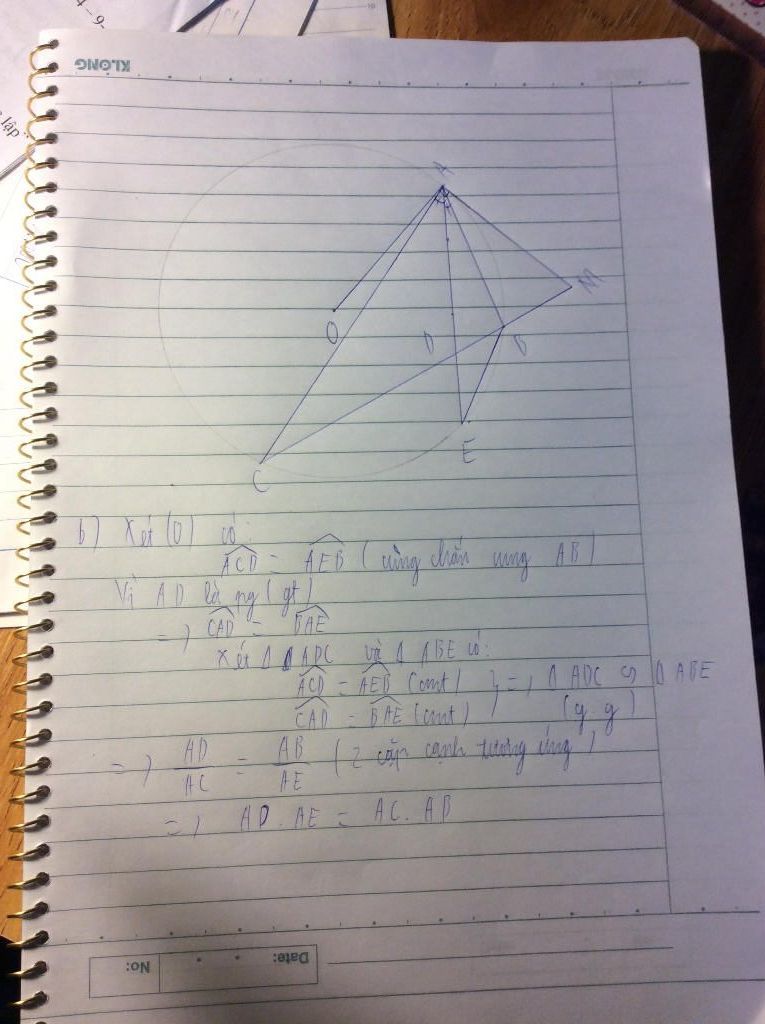 KLONG
A
O
M
D
B
E
C
b) Xét (O) có:
ACD = AEB (cùng chắn cung AB)
Vì AD là pg (gt)
=> CAD = BAE
Xét Δ ADC và Δ ABE có:
ACD = AEB (cmt) } => Δ ADC ∽ Δ ABE
CAD = BAE (cmt) (g.g)
=> AD/AC = AB/AE (2 cặp cạnh tương ứng)
=> AD . AE = AC . AB
No: Date: